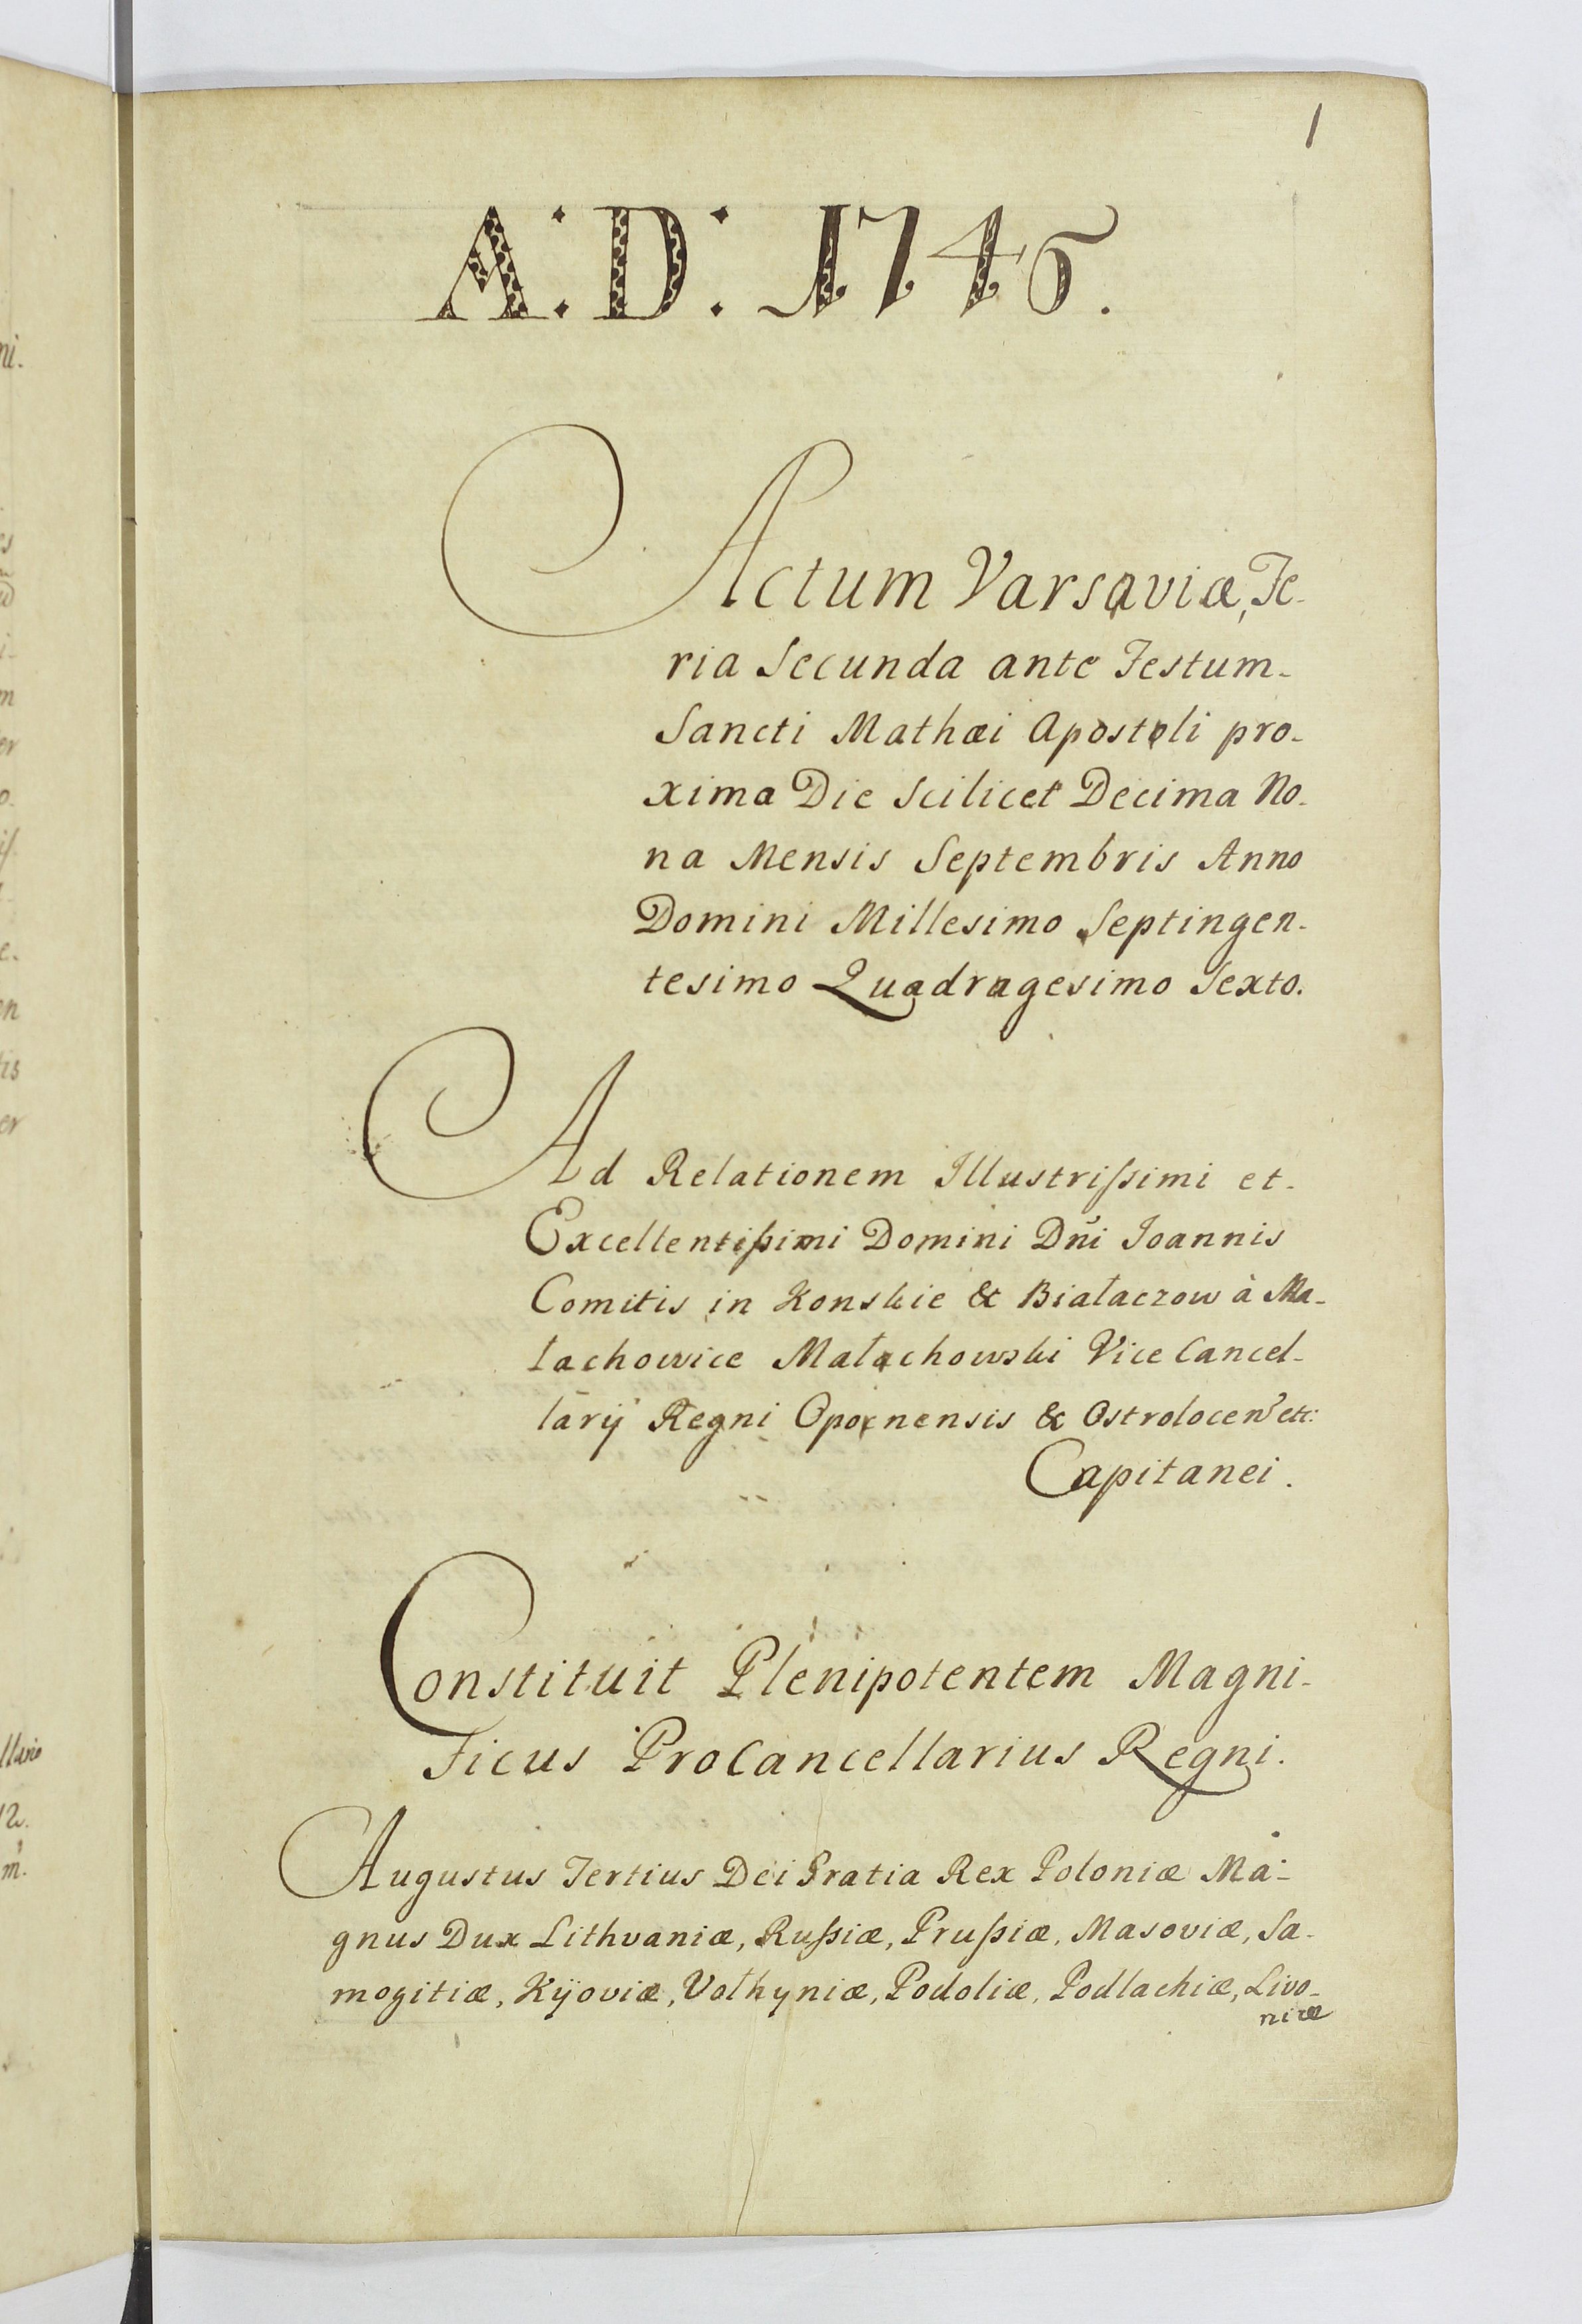 1
A: D: 1746.
Actum Varsaviæ, Fe-
ria Secunda ante Festum
Sancti Mathæi Apostoli pro-
xima Die scilicet Decima No-
na Mensis Septembris Anno
Domini Millesimo Septingen-
tesimo Quadragesimo Sexto.
Ad Relationem Illustrissimi et
Excellentissimi Domini Dñi Joannis
Comitis in Konskie & Białaczow à Ma-
łachowice Małachowski Vice Cancel-
larij Regni Opocnensis & Ostrolocen etc:
Capitanei.
Constituit Plenipotentem Magni-
ficus ProCancellarius Regni.
Augustus Tertius Dei Gratia Rex Poloniæ Ma-
gnus Dux Lithvaniæ, Russiæ, Prussiæ, Masoviæ, Sa-
mogitiæ, Kijoviæ, Volhyniæ, Podoliæ, Podlachiæ, Livo-
niæ